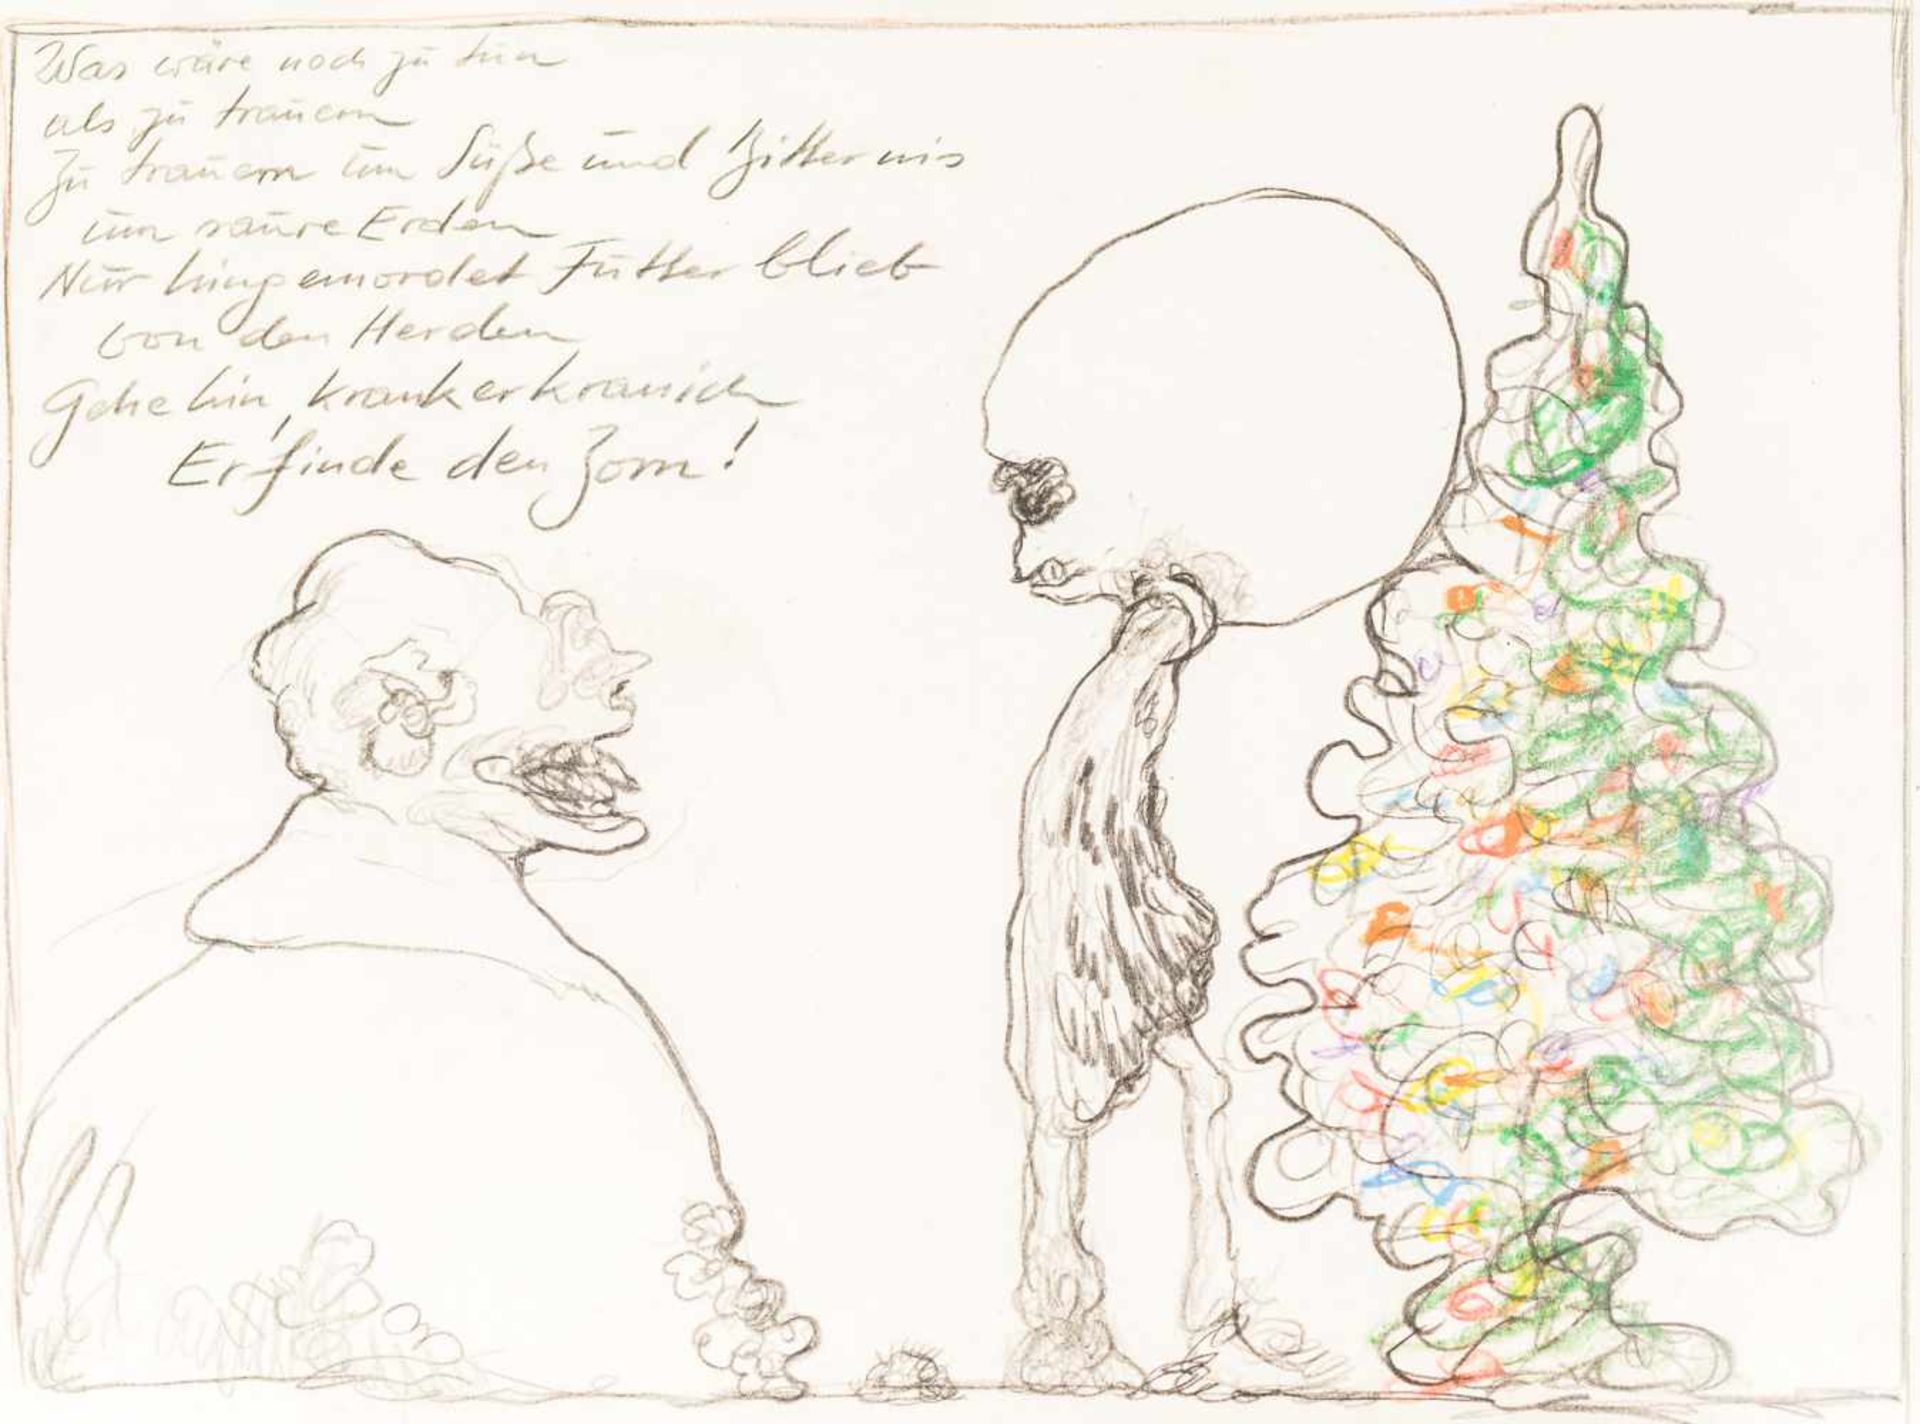 Was wäre noch zu tun
als zu trauern
Zu trauern um Süße und Bitternis
um saure Erden
Nur hingemordet Futter blieb
von den Herden
Gehe hin, kranker kranich
Erfinde den Zorn!